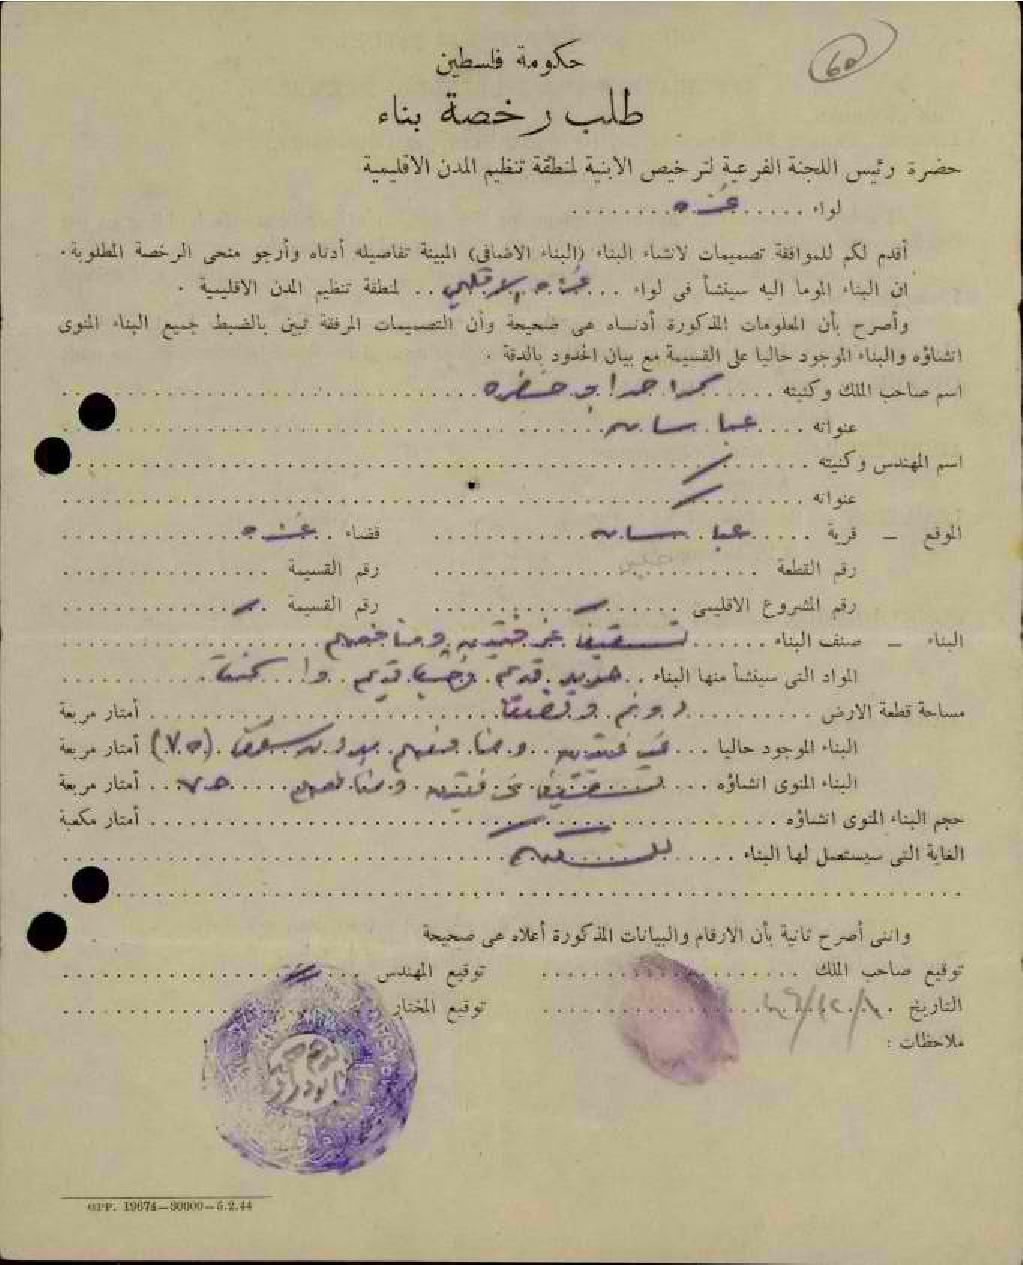 60
حكومة فلسطين
طلب رخصة بناء
حضرة رئيس اللجنة الفرعية لترخيص الابنية لمنطقة تنظيم المدن الاقليمية
لواء ..... غزه ........
أقدم لكم للموافقة تصميمات لانشاء البناء (البناء الاضافى) المبينة تفاصيله أدناه وأرجو منحى الرخصة المطلوبة.
ان البناء الموما اليه سينشأ فى لواء ... غزه الاقليمي .. لمنطقة تنظيم المدن الاقليمية .
وأصرح بأن المعلومات المذكورة أدناه هى صحيحة وأن التصميمات المرفقة تبين بالضبط جميع البناء المنوى
انشاؤه والبناء الموجود حاليا على القسيمة مع بيان الحدود بالدقة .
اسم صاحب الملك وكنيته
عنوانه .... عبا سان
اسم المهندس وكنيته
عنوانه
الموقع – قرية ..... عبا سان ........ قضاء .. غزه
رقم القطعة ........ رقم القسيمة
رقم المشروع الاقليمى ........ رقم القسيمة
البناء – صنف البناء ...... تسقيف غرفتين ومنافعهم
المواد التى سينشأ منها البناء .. حديد قديم وخشب قديم
مساحة قطعة الارض ......... دونم ........ أمتار مربعة
البناء الموجود حاليا ... غرفتين ومنافعهم بدون سقف (٧٥) أمتار مربعة
البناء المنوى انشاؤه .... تسقيف غرفتين ومنافعهم ..... ٧٥ ... أمتار مربعة
حجم البناء المنوى انشاؤه ........ أمتار مكعبة
الغاية التى سيستعمل لها البناء ..... للسكن
واننى أصرح ثانية بأن الارقام والبيانات المذكورة أعلاه هى صحيحة
توقيع صاحب الملك ........ توقيع المهندس
التاريخ ........ توقيع المختار
ملاحظات :
GPP. 19674—30000—5.2.44